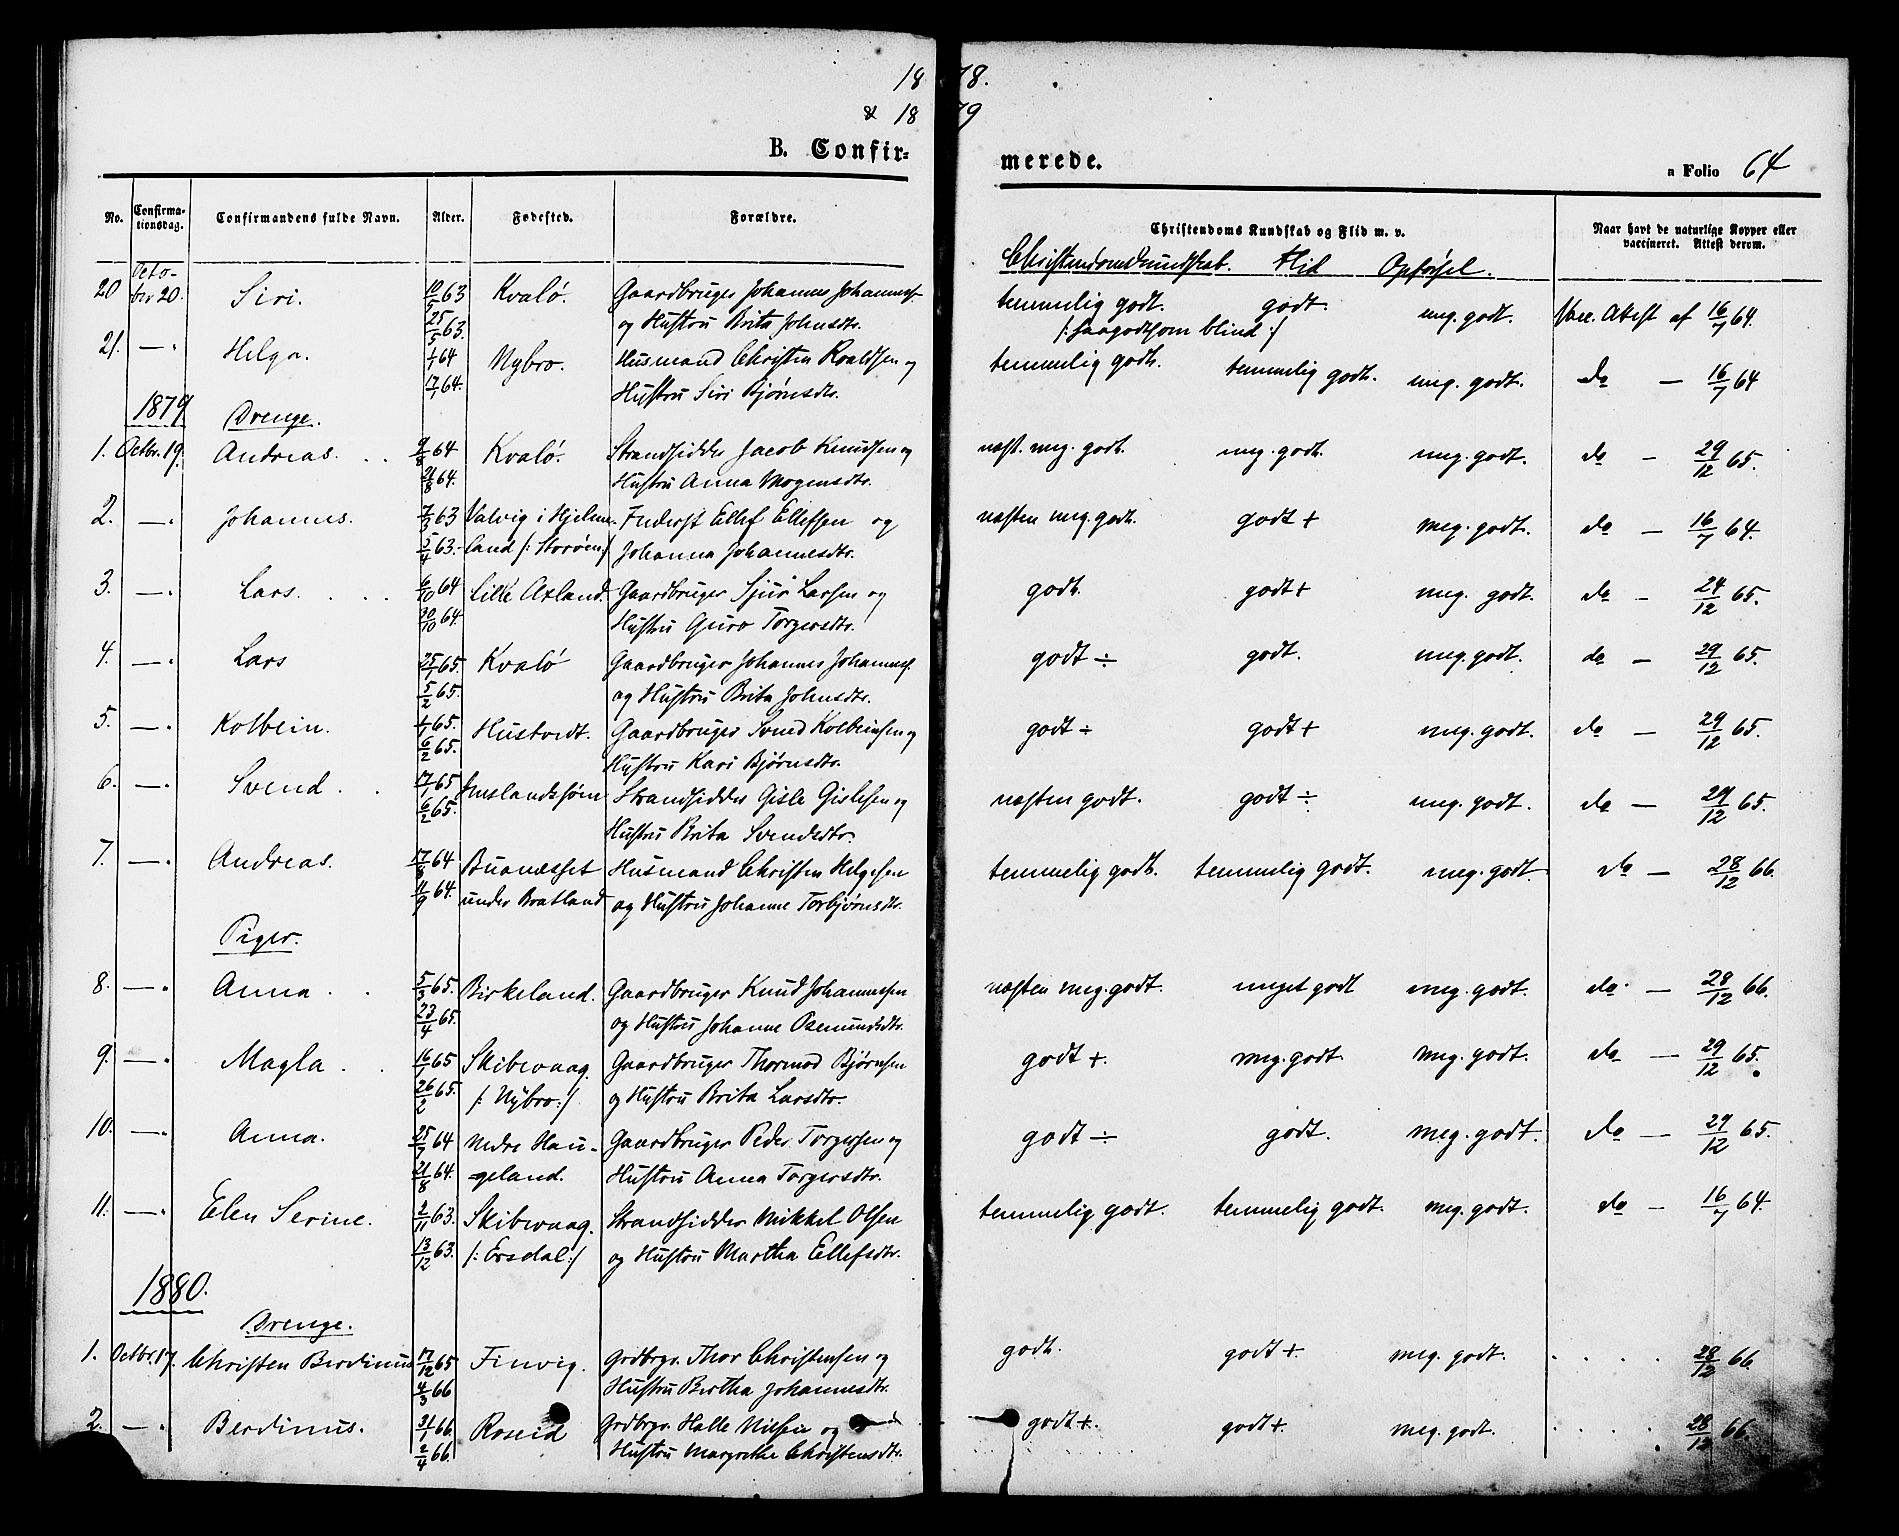 1878.
& 1879
B. Confirmerede.
a Folio 64
No. Confirmationsdag. Confirmandens fulde Navn. Alder. Fødested. Forældre. Christendoms Kundskab og Flid m. v. Naar havt de naturlige Kopper eller vaccineret. Attest derom.
Christendomskundskab. Flid Opførsel.
20 October 20. Siri. 63 Kvalø. Gaardbruger Johannes Johanness. temmelig godt. godt. meg. godt. Vacc. Atest af 16/7 64.
25/5 63. og Hustru Brita Johnsdtr. /: saagodtsom blind :/
21. —. Helga. 64 Nybro. Husmand Christen Roaldsen og temmelig godt. temmelig godt. meg. godt. do — 16/7 64
17/1 64. Hustru Siri Bjørnsdtr.
1879 Drenge.
1. Octbr. 19. Andreas. 9/8 64 Kvalø. Strandsidder Jacob Knudsen og næst. meg. godt. meg. godt. meg. godt. do — 29/12 65.
21/8 64. Hustru Anna Mogensdtr.
2. —. Johannes. 7/3 63 Valvig i Hjelme- Inderst Ellef Ellefsen og næsten meg. godt. godt + meg. godt. do — 16/7 64.
5/4 63. land /: Storøen :/ Johanna Johannesdtr.
3. —. Lars. 6/10 64 Lille Axland. Gaardbruger Sjur Larsen og godt. godt + meg. godt. do — 24/12 65.
30/10 64. Hustru Guro Torgersdtr.
4. —. Lars 25/1 65. Kvalø Gaardbruger Johannes Johanness. godt ÷ godt. meg. godt. do — 29/12 65.
5/2 65. og Hustru Brita Johnsdtr.
5. —. Kolbein. 65. Hustvedt. Gaardbruger Svend Kolbeinsen og godt ÷ godt + meg. godt. do — 29/12 65.
6/2 65. Hustru Kari Bjørnsdtr.
6. —. Svend. 17/1 65 Imslandssjøen Strandsidder Gisle Gislesen og næsten godt. godt ÷ meg. godt. do — 29/12 65.
6/2 65. Hustru Brita Svendsdtr.
7. —. Andreas. 17/8 64 Buanæsset Husmand Christen Helgesen temmelig godt. temmelig godt. meg. godt. do — 28/12 66.
11/9 64. under Bratland og Hustru Johanne Torbjørnsdtr.
Piger.
8. —. Anna. 5/3 65. Birkeland. Gaardbruger Knud Johannesen næsten meg. godt. meget godt meg. godt. do. — 28/12 66.
23/4 65. og Hustru Johanne Osmundsdtr.
9. —. Magla. 16/1 65 Skibevaag Gaardbruger Thormod Bjørnsen godt +. meg. godt. meg. godt. do — 29/12 65.
26/2 65. /: Nybro :/ og Hustru Brita Larsdtr.
10. —. Anna. 25/7 64 Nedre Hau- Gaardbruger Peder Torgersen og godt ÷ godt. meg. godt. do — 29/12 65.
21/8 64. geland. Hustru Anna Torgersdtr.
11. —. Elen Serine. 2/11 63. Skibevaag. Strandsidder Mikkel Olsen temmelig godt. temmelig godt. meg. godt. do — 16/7 64.
13/12 63. /: Ersdal :/ og Hustru Martha Ellefsdtr.
1880.
Drenge.
1. Octbr. 17. Christen Berdinus 17/12 65 Finvig. Grdbrgr. Thor Christensen og godt. godt +. meg. godt. . . . . 28/12 66.
4/3 66 Hustru Bertha Johannesdtr.
2. —. Berdinus. 31/1 66. Roseid Grdbrgr. Halle Nilsen og godt +. godt +. meg. godt. . . . . 28/12 66.
2/4 66. Hustru Margrethe Christensdtr.